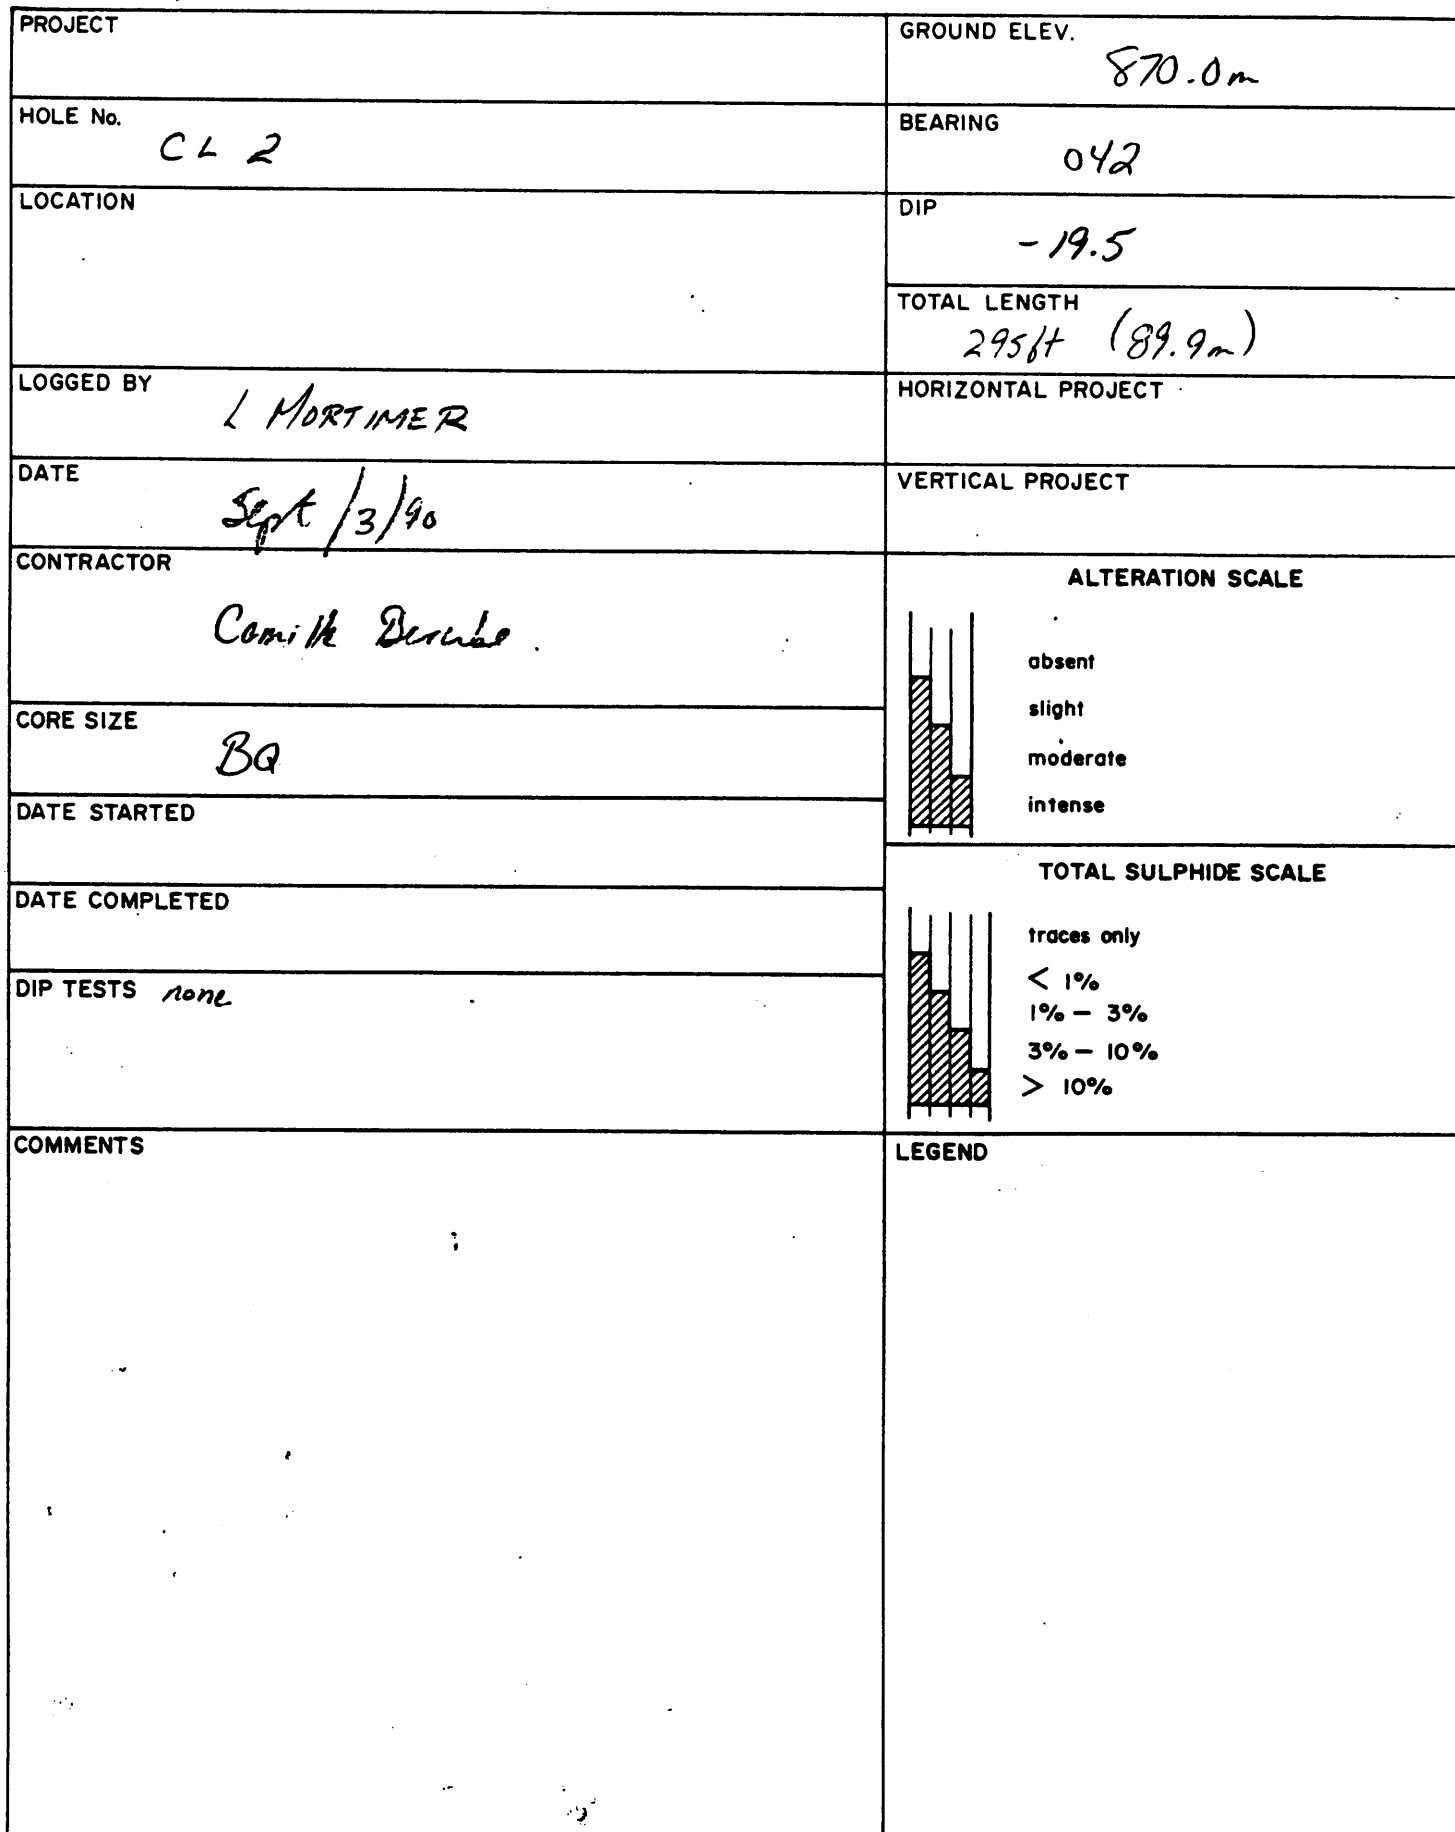 PROJECT
HOLE No.
CL 2
LOCATION
LOGGED BY
L MORTIMER
DATE
Sept/3/90
CONTRACTOR
CORE SIZE
BQ
DATE STARTED
DATE COMPLETED
DIP TESTS none
COMMENTS
GROUND ELEV.
870.0m
BEARING
042
DIP
-19.5
TOTAL LENGTH
295ft (89.9m)
HORIZONTAL PROJECT
VERTICAL PROJECT
ALTERATION SCALE
absent
slight
moderate
intense
TOTAL SULPHIDE SCALE
traces only
< 1%
1% – 3%
3% – 10%
> 10%
LEGEND